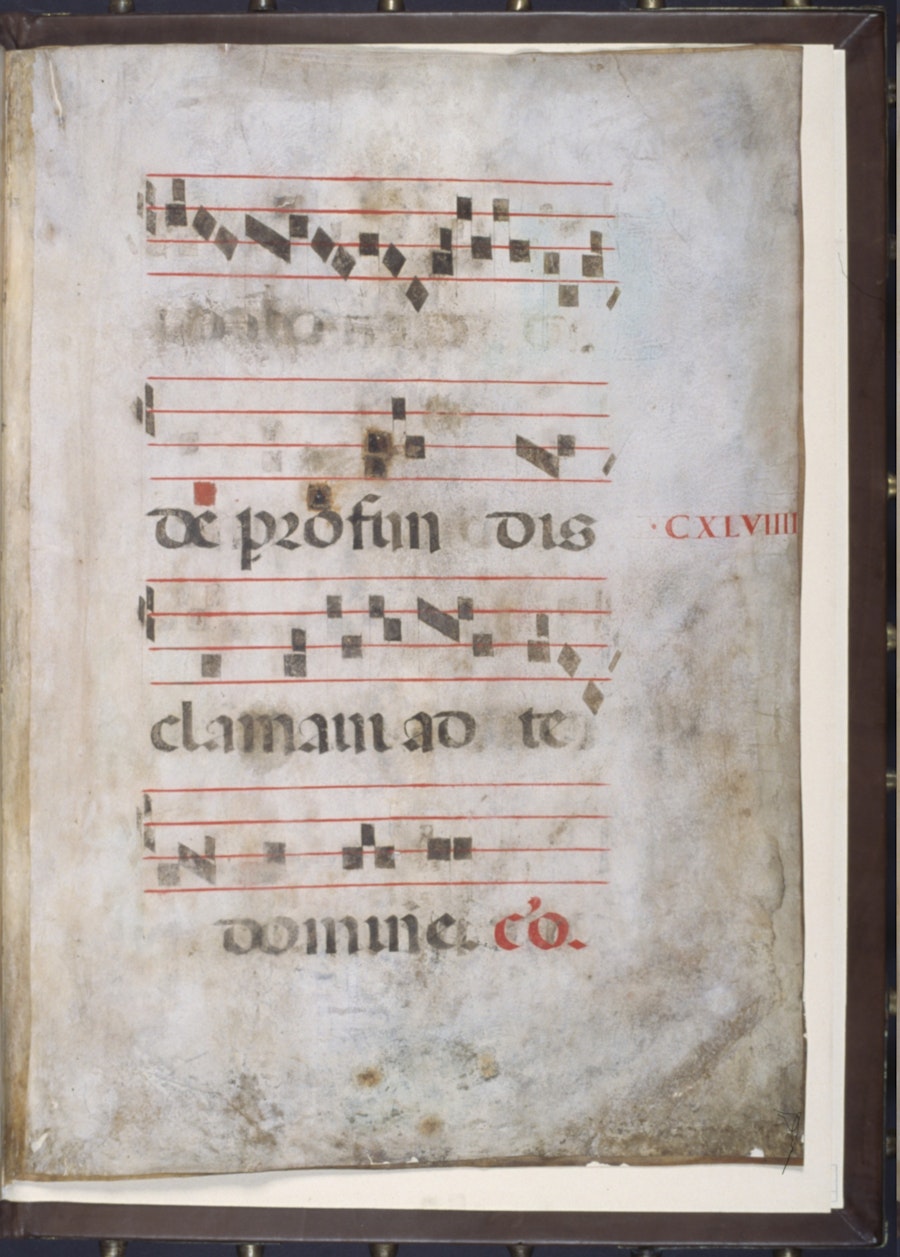 de profun dis
· CXLVIIII
clamaui ad te
domine. c'o.